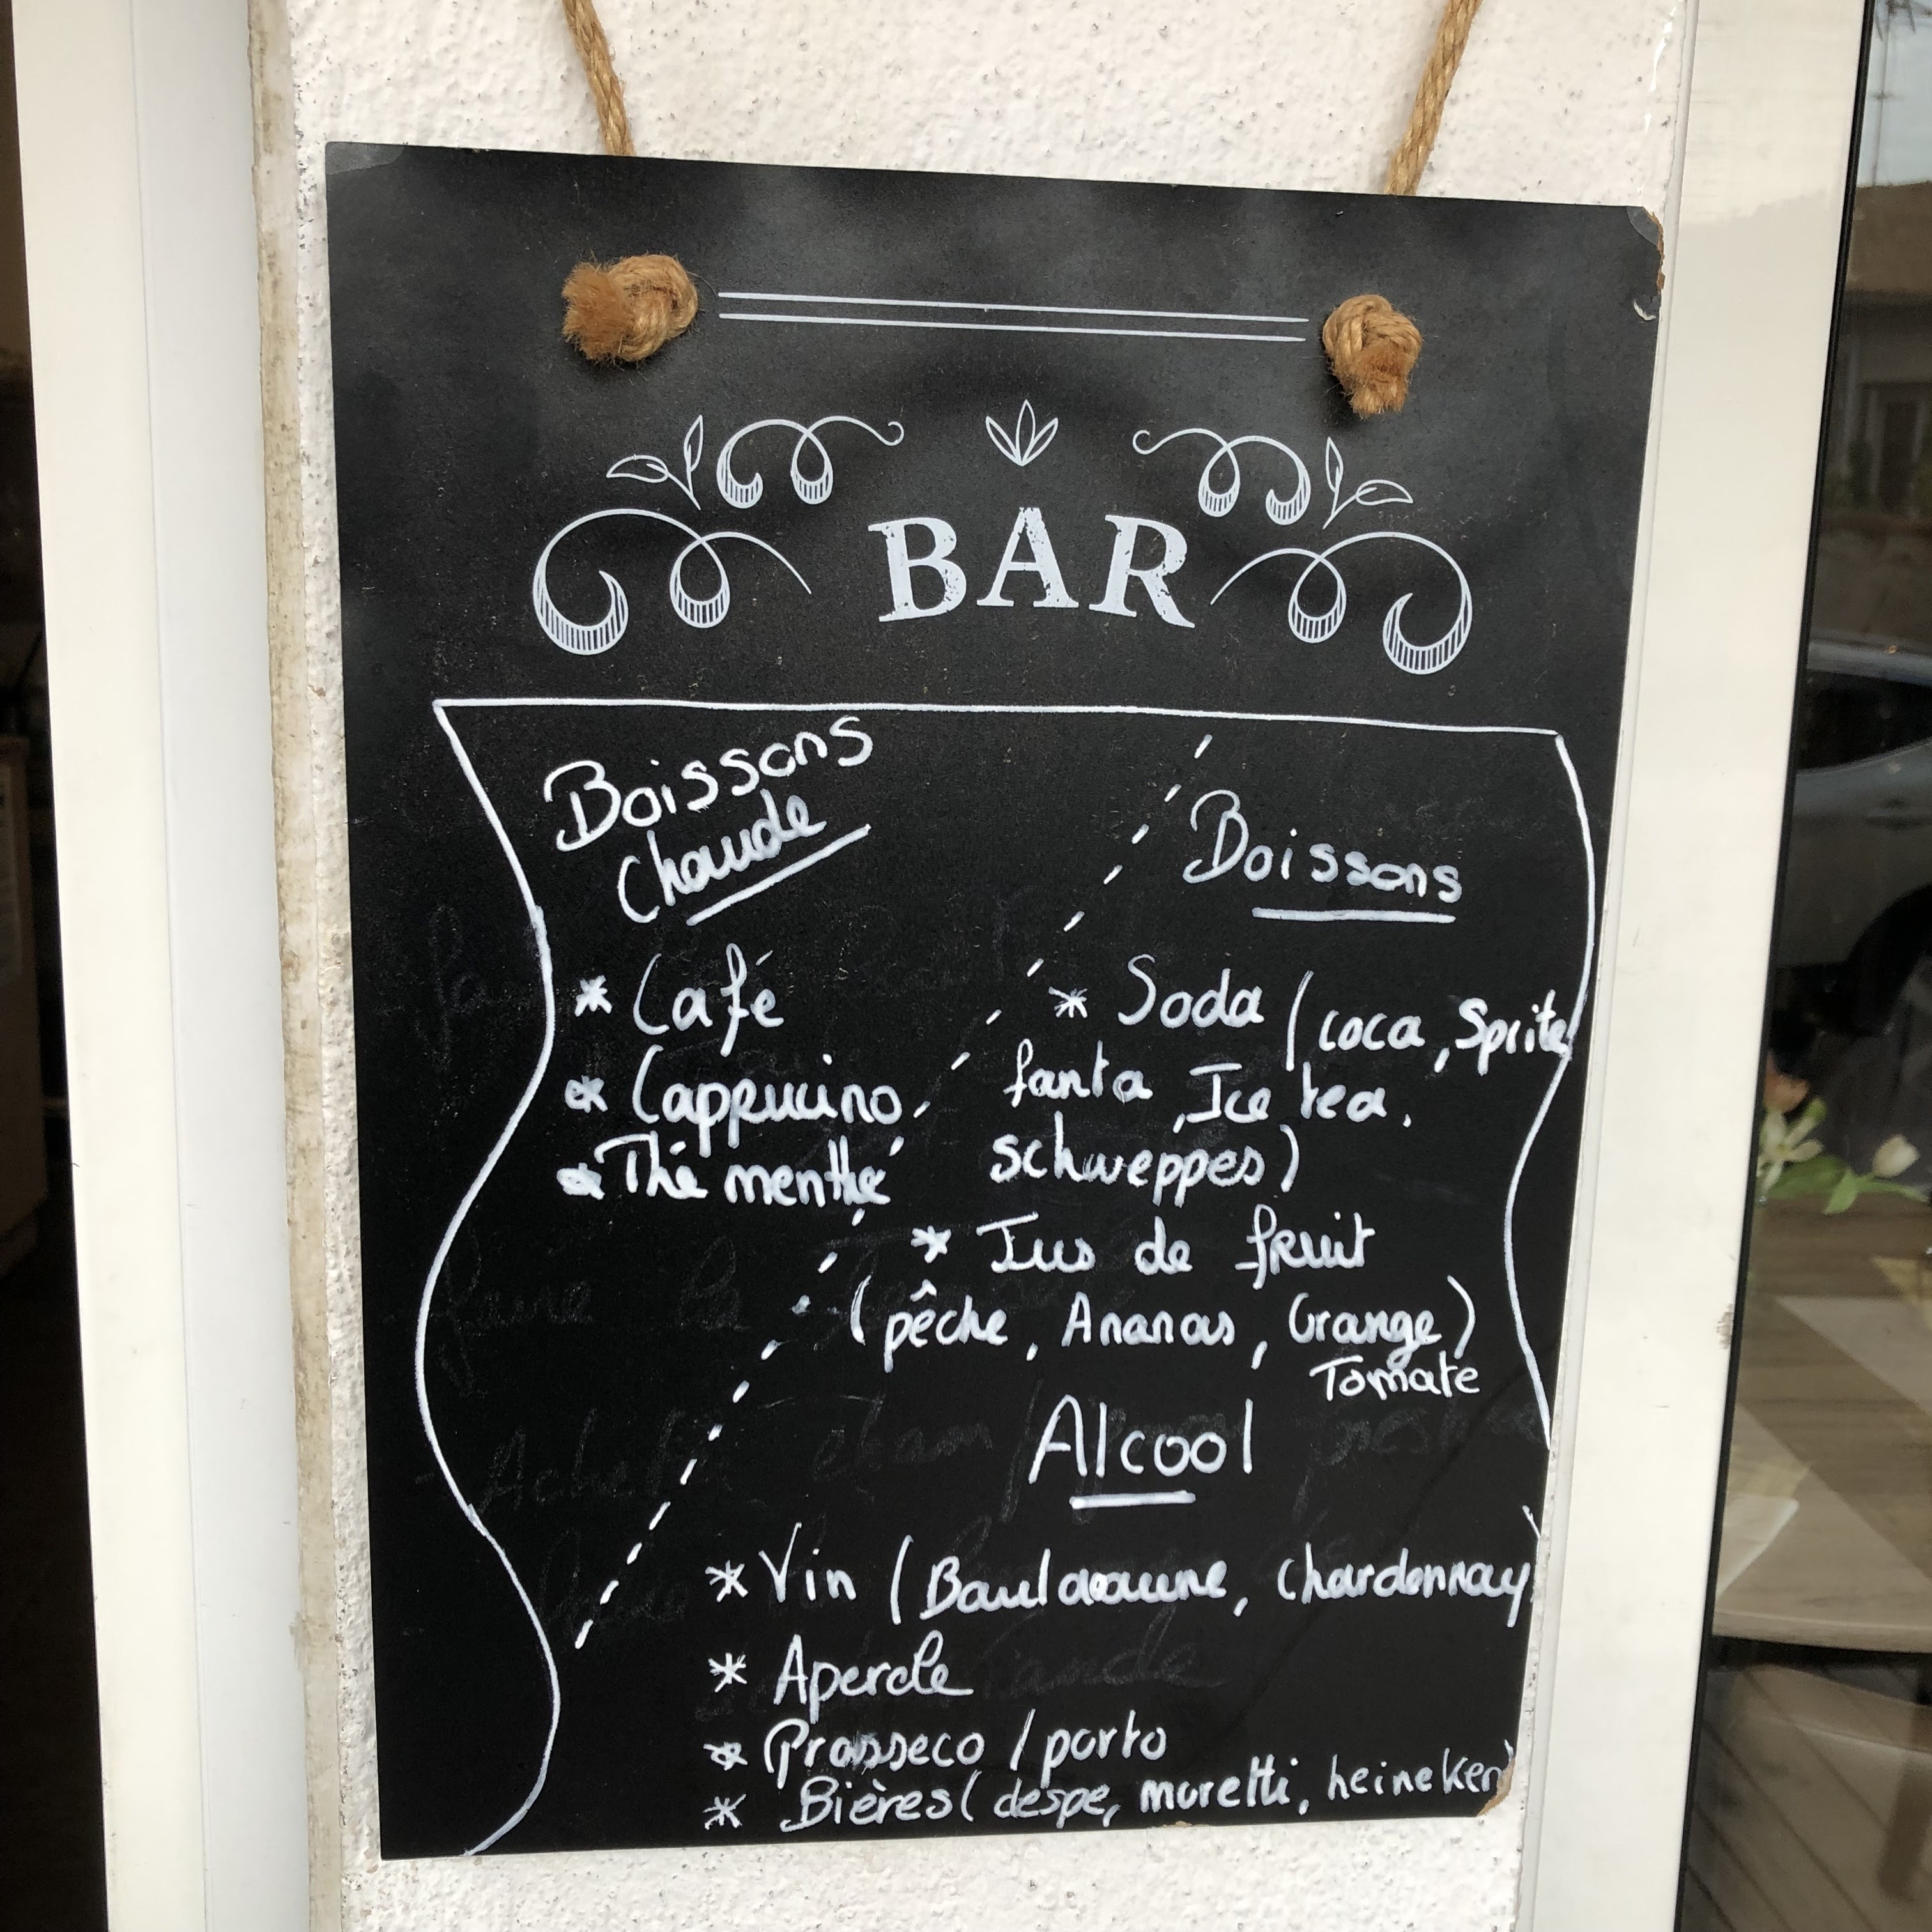 BAR
Boissons
Chaude
* Café
* Cappucino
* Thé menthe
Boissons
* Soda (coca, Sprite
fanta, Ice tea,
schweppes)
* Jus de fruit
(pêche, Ananas, Orange)
Tomate
Alcool
* Vin ( , chardonnay)
* Aperole
* Prosseco / porto
* Bières (despe, moretti, heineken)